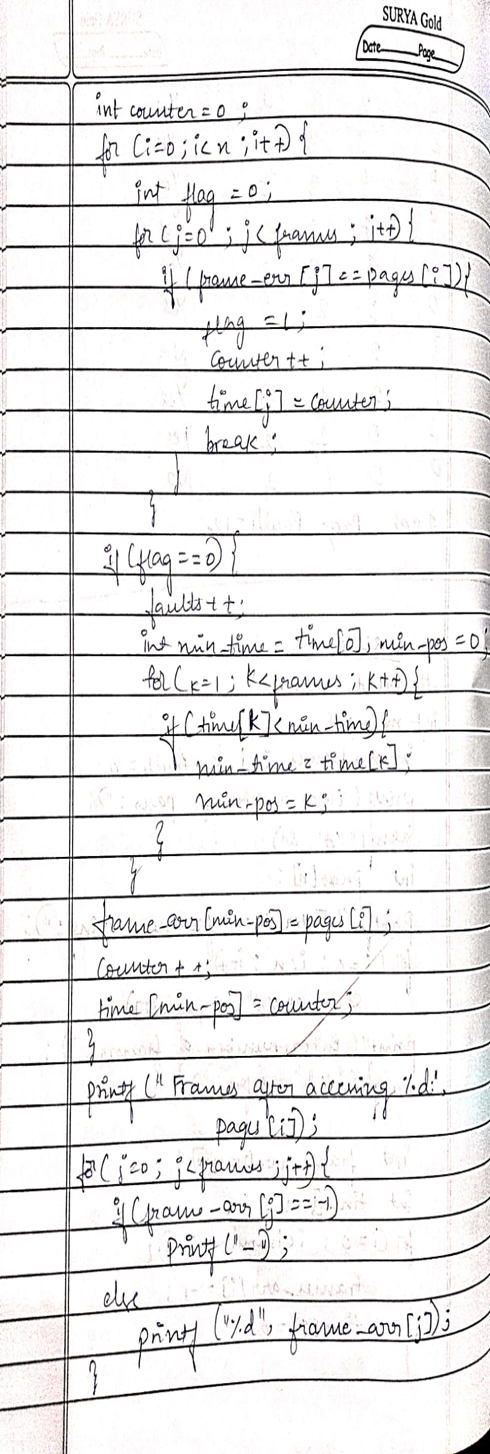 SURYA Gold
Date Page
int counter = 0 ;
for (i=0 ; i<n ; i++) {
int flag = 0;
for (j=0 ; j<frames ; j++) {
if (frame-err [j] == pages [i]) {
flag = 1 ;
counter ++ ;
time [j] = counter ;
break ;
}
}
if (flag == 0) {
faults ++;
int min-time = time[0], min-pos = 0;
for (k=1 ; k<frames ; k++) {
if (time[k] < min-time) {
min-time = time [k] ;
min-pos = k ;
}
}
frame-arr [min-pos] = pages [i] ;
Counter + +;
time [min-pos] = counter ;
}
printf (" Frames after accening %d:",
pages [i]) ;
for (j=0 ; j<frames ; j++) {
if (frame-arr [j] == -1)
printf ("-") ;
else
printf ("%d", frame-arr [j]) ;
}